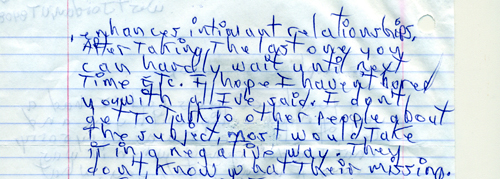 . enhances, intimant relationships.
After taking the last one you
can hardly wait until next
time etc. I hope I haven't bored
you with all I've said. I don't
get to talk to other people about
the subject, most would take
it in a negative way. They
don't know what their missing.